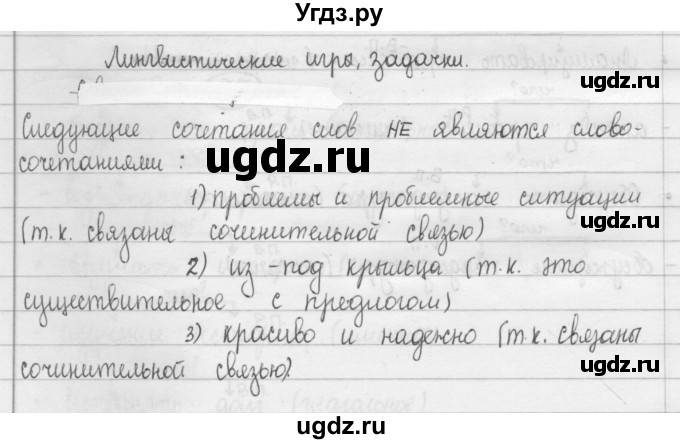 Угдз.ру
Лингвистические игры, задачки.
ugdz.ru
Следующие сочетания слов НЕ являются слово-
сочетаниями :
ugdz.ru
1) проблемы и проблемные ситуации
(т.к. связаны сочинительной связью)
2) из-под крыльца (т.к. это
существительное с предлогом)
3) красиво и надежно (т.к. связаны
сочинительной связью)
ugdz.ru
ugdz.ru